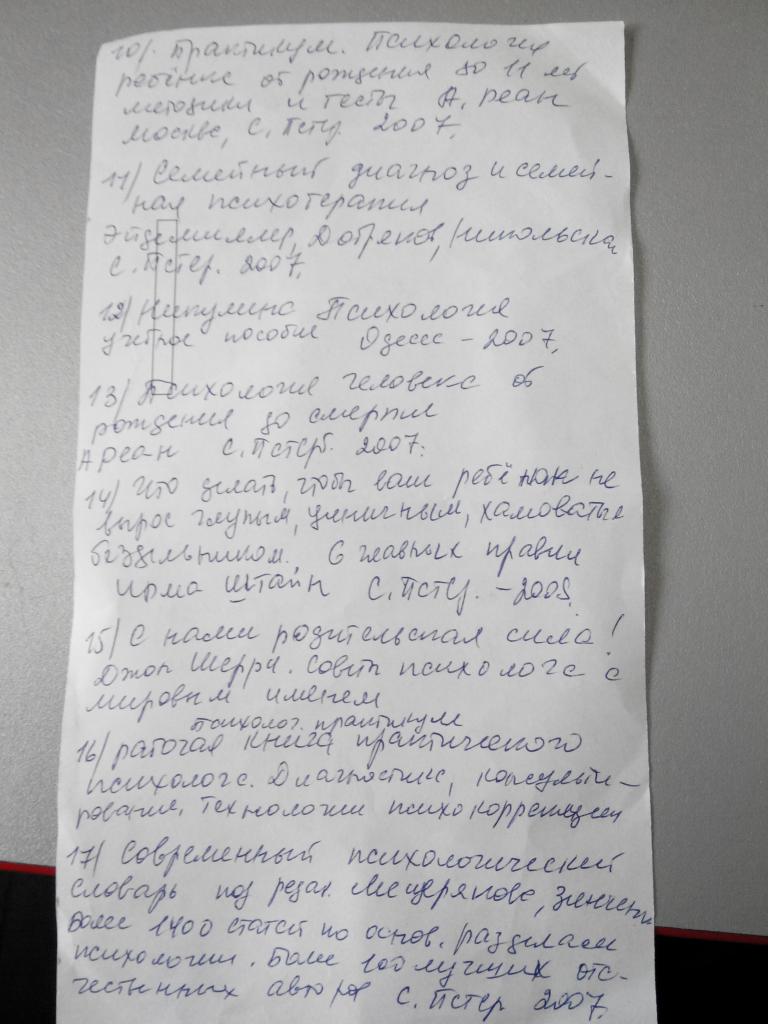 10/. Практикум. Психология
ребёнка от рождения до 11 лет
методики и тесты А. Реан
Москва, С. Птер 2007.
11/ Семейный диагноз и семей-
ная психотерапия
Эйдемиллер, Добряков, Никольская
С. Петер. 2007.
12/ Никулина Психология
учебное пособие Одесса - 2007.
13/ Психология человека от
рождения до смерти
А Реан С. Петерб. 2007.
14/ Что делать, чтобы ваш ребёнок не
вырос глупым, циничным, хамоватым
бездельником. 6 главных правил
Ирма Штайн С. Петер. - 2008.
15/ С нами родительская сила!
Джон Шерри. Советы психолога с
мировым именем
психолог. практикум
16/ рабочая книга практического
психолога. Диагностика, консульти-
рование, технологии психокоррекции
17/ Современный психологический
словарь под редак. Мещерякова, Зинченко
Более 1400 статей по основ. разделам
психологии. Более 100 лучших оте-
чественных авторов С. Петер 2007.